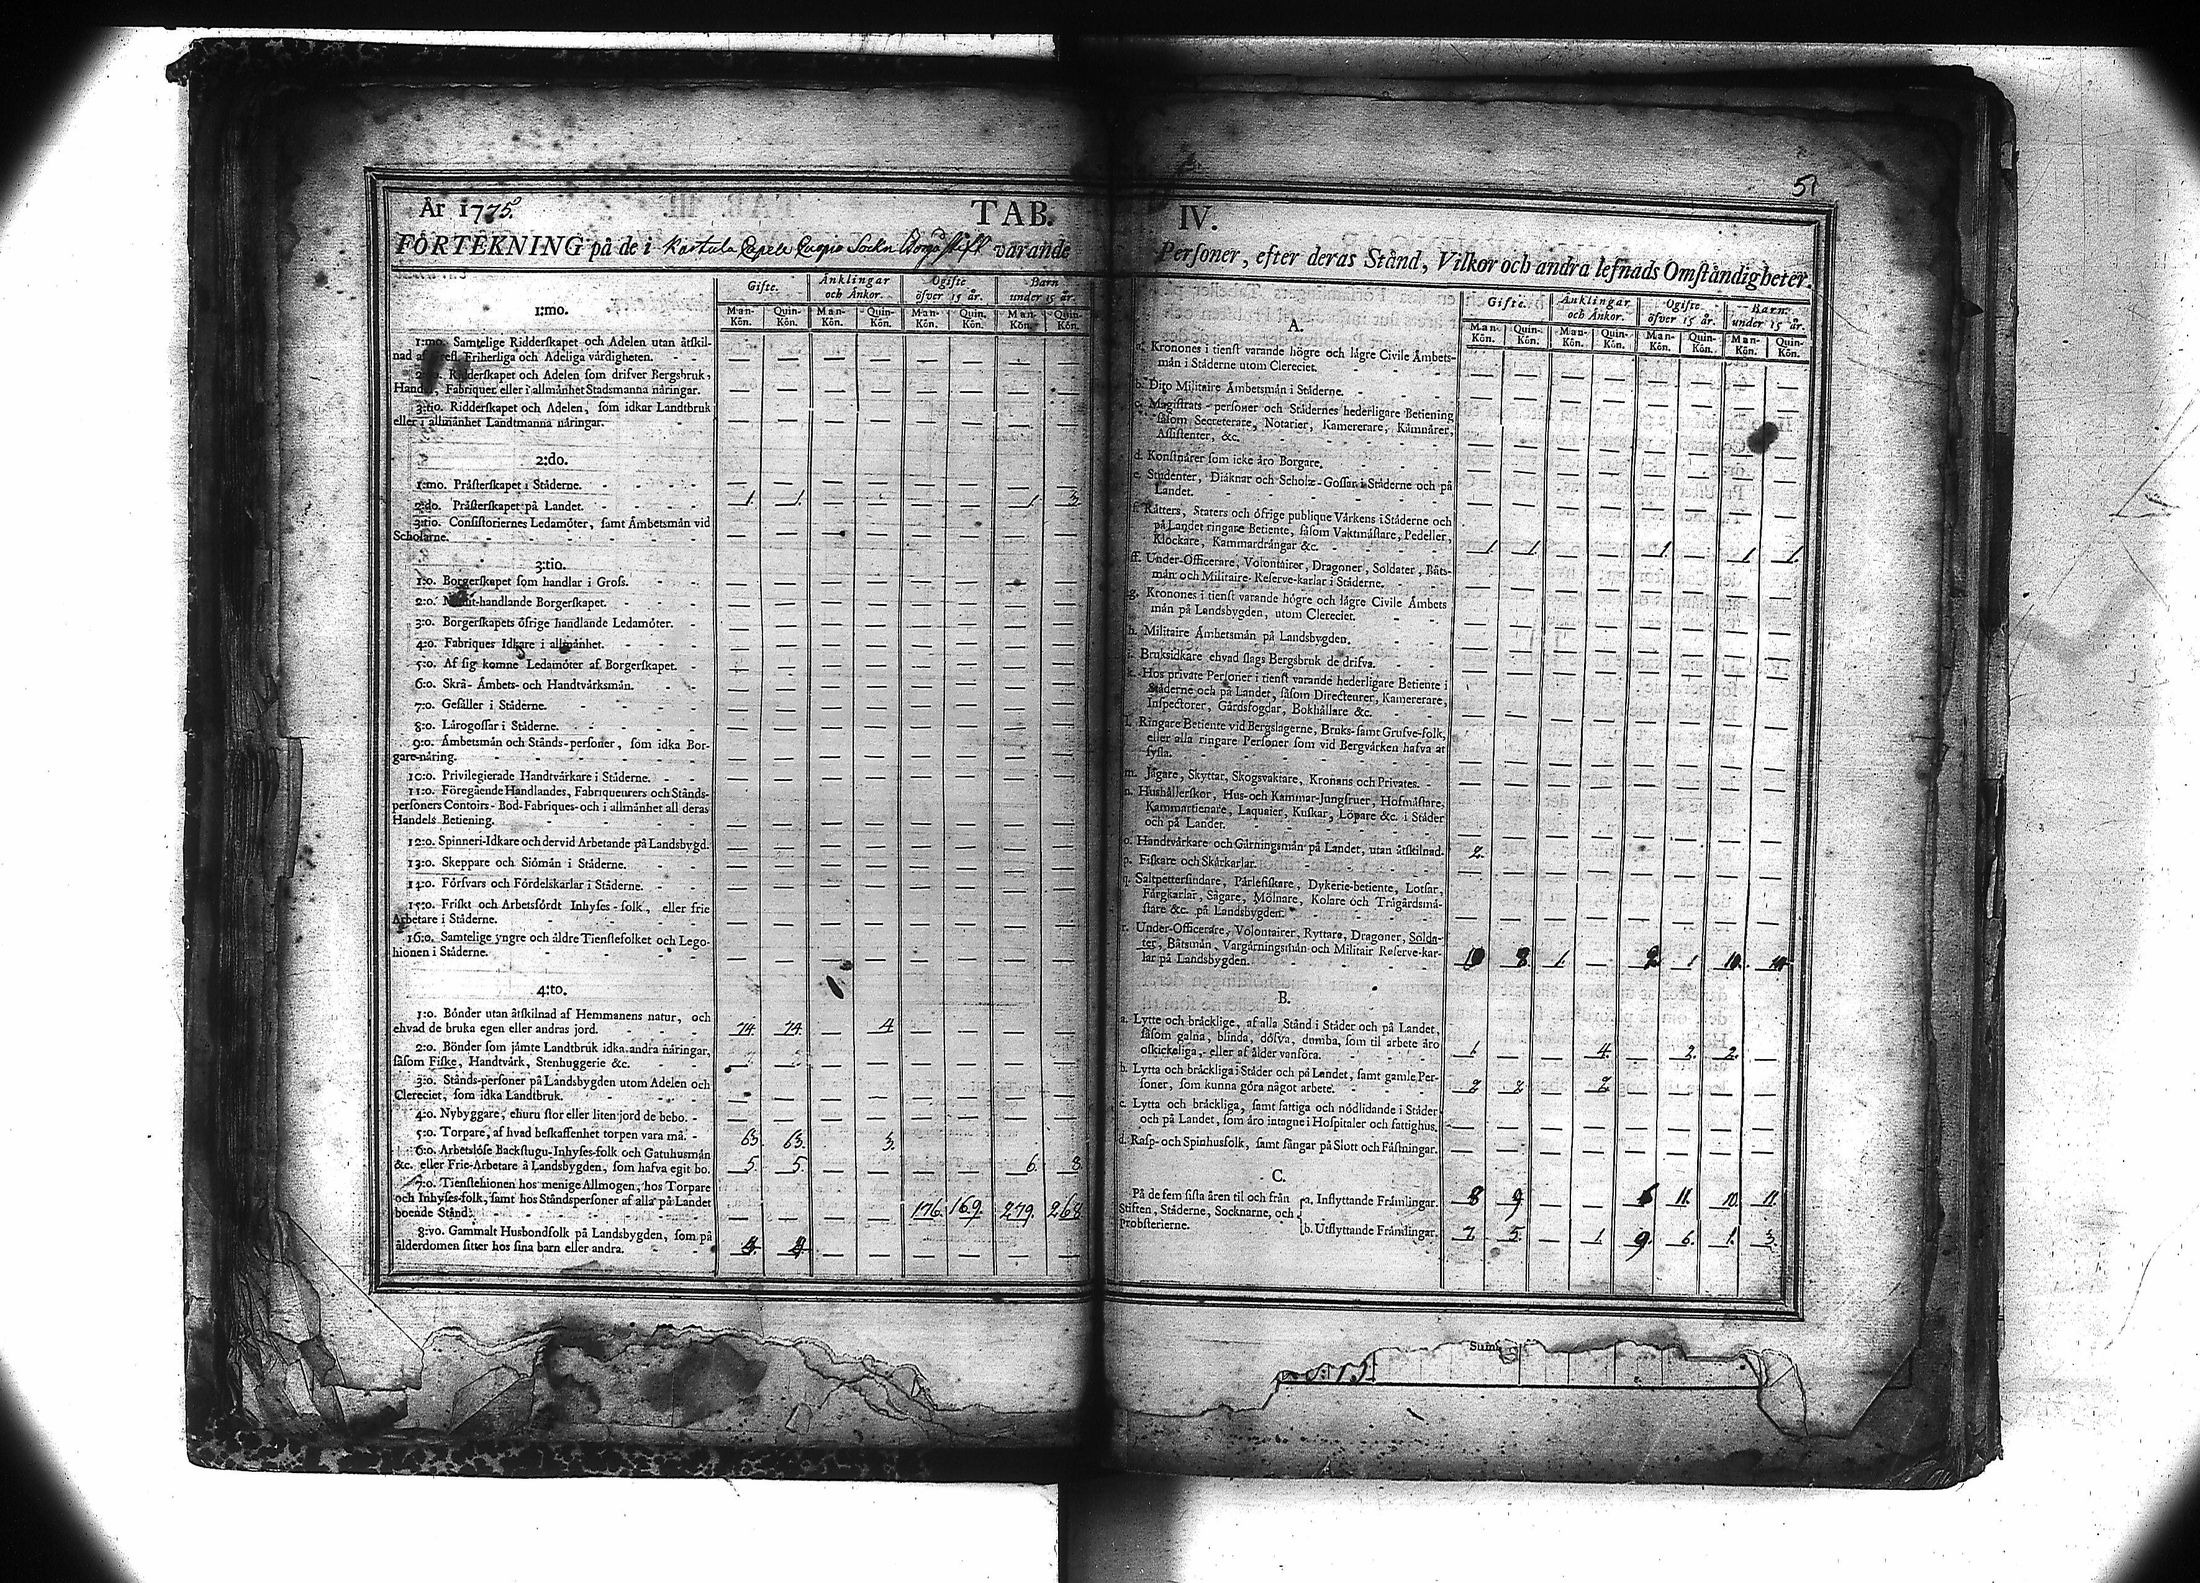 51
År 1775.
TAB. IV.
FÖRTEKNING på de i Kautula Capele Cuopio Sockn Borgå stift varande Personer, efter deras Stånd, Vilkor och andra lefnads Omständigheter.
Gifte. Änklingar och Änkor. Ogifte öfver 15 år. Barn under 15 år.
Man-Kön. Quin-Kön. Man-Kön. Quin-Kön. Man-Kön. Quin-Kön. Man-Kön. Quin-Kön.
1:mo.
1:mo. Samtelige Ridderskapet och Adelen utan åtskil-
nad af Grefl. Friherliga och Adeliga värdigheten. — — — — — — — —
2:do. Ridderskapet och Adelen som drifver Bergsbruk,
Handel, Fabriquer eller i allmänhet Stadsmanna näringar. — — — — — — — —
3:tio. Ridderskapet och Adelen, som idkar Landtbruk
eller i allmänhet Landtmanna näringar. — — — — — — — —
2:do.
1:mo. Prästerskapet i Städerne. — — — — — — — —
2:do. Prästerskapet på Landet. 1. 1. — — — — 1. 3.
3:tio. Consistoriernes Ledamöter, samt Ämbetsmän vid
Scholarne. — — — — — — — —
3:tio.
1:o. Borgerskapet som handlar i Gross. — — — — — — — —
2:o. Minut-handlande Borgerskapet. — — — — — — — —
3:o. Borgerskapets öfrige handlande Ledamöter. — — — — — — — —
4:o. Fabriques Idkare i allmänhet. — — — — — — — —
5:o. Af sig komne Ledamöter af Borgerskapet. — — — — — — — —
6:o. Skrå- Ämbets- och Handtvärksmän. — — — — — — — —
7:o. Gesäller i Städerne. — — — — — — — —
8:o. Lärogossar i Städerne. — — — — — — — —
9:o. Ämbetsmän och Stånds-personer, som idka Bor-
gare-näring. — — — — — — — —
10:o. Privilegierade Handtvärkare i Städerne. — — — — — — — —
11:o. Föregående Handlandes, Fabriqueurers och Stånds-
personers Contoirs- Bod-Fabriques- och i allmänhet all deras
Handels Betiening. — — — — — — — —
12:o. Spinneri-Idkare och dervid Arbetande på Landsbygd. — — — — — — — —
13:o. Skeppare och Siömän i Städerne. — — — — — — — —
14:o. Försvars och Fördelskarlar i Städerne. — — — — — — — —
15:o. Friskt och Arbetsfördt Inhyses-folk, eller frie
Arbetare i Städerne. — — — — — — — —
16:o. Samtelige yngre och äldre Tienstefolket och Lego-
hionen i Städerne. — — — — — — — —
4:to.
1:o. Bönder utan åtskilnad af Hemmanens natur, och
ehvad de bruka egen eller andras jord. 74. 74. — 4 — — — —
2:o. Bönder som jämte Landtbruk idka andra näringar,
såsom Fiske, Handtvärk, Stenhuggerie &c. — — — — — — — —
3:o. Stånds-personer på Landsbygden utom Adelen och
Clereciet, som idka Landtbruk. — — — — — — — —
4:o. Nybyggare, ehuru stor eller liten jord de bebo. — — — — — — — —
5:o. Torpare, af hvad beskaffenhet torpen vara må. 63. 63. 3.
6:o. Arbetslöse Backstugu-Inhyses-folk och Gatuhusmän
&c. eller Frie-Arbetare å Landsbygden, som hafva egit bo. 5. 5. — — — — 6. 8.
7:o. Tienstehionen hos menige Allmogen, hos Torpare
och Inhyses-folk, samt hos Ståndspersoner af alla på Landet
boende Stånd. — — — — 176. 169. 279. 268.
8:vo. Gammalt Husbondfolk på Landsbygden, som på
ålderdomen sitter hos sina barn eller andra. — — — — — —
Gifte. Änklingar och Änkor. Ogifte öfver 15 år. Barn under 15 år.
Man-Kön. Quin-Kön. Man-Kön. Quin-Kön. Man-Kön. Quin-Kön. Man-Kön. Quin-Kön.
A.
a. Kronones i tienst varande högre och lägre Civile Ämbets-
män i Städerne utom Clereciet. — — — — — — — —
b. Dito Militaire Ämbetsmän i Städerne. — — — — — — — —
c. Magistrats-personer och Städernes hederligare Betiening
såsom Secreterare, Notarier, Kamererare, Kämnärer,
Assistenter, &c. — — — — — — — —
d. Konstnärer som icke äro Borgare. — — — — — — — —
e. Studenter, Diäknar och Scholæ-Gossar i Städerne och på
Landet. — — — — — — — —
f. Rätters, Staters och öfrige publique Värkens i Städerne och
på Landet ringare Betiente, såsom Vaktmästare, Pedeller,
Klockare, Kammardrängar &c. 1. 1. — — 1. — 1. 1.
ff. Under-Officerare, Volontairer, Dragoner, Soldater, Båts-
män och Militaire-Reserve-karlar i Städerne. — — — — — — — —
g. Kronones i tienst varande högre och lägre Civile Ämbets
män på Landsbygden, utom Clereciet. — — — — — — — —
h. Militaire Ämbetsmän på Landsbygden. — — — — — — — —
i. Bruksidkare ehvad slags Bergsbruk de drifva. — — — — — — — —
k. Hos private Personer i tienst varande hederligare Betiente i
Städerne och på Landet, såsom Directeurer, Kamererare,
Inspectorer, Gårdsfogdar, Bokhållare &c. — — — — — — — —
l. Ringare Betiente vid Bergslagerne, Bruks- samt Grufve-folk,
eller alla ringare Personer som vid Bergvärken hafva at
sysla. — — — — — — — —
m. Jägare, Skyttar, Skogsvaktare, Kronans och Privates. — — — — — — — —
n. Hushållerskor, Hus- och Kammar-Jungfruer, Hofmästare,
Kammartienare, Laquaier, Kuskar, Löpare &c. i Städer
och på Landet. — — — — — — — —
o. Handtvärkare och Gärningsmän på Landet, utan åtskilnad. 2. — — — — — — —
p. Fiskare och Skärkarlar. — — — — — — — —
q. Saltpettersiudare, Pärlefiskare, Dykerie-betiente, Lotsar,
Färgkarlar, Sågare, Mölnare, Kolare och Trägårdsmä-
stare &c. på Landsbygden. — — — — — — — —
r. Under-Officerare, Volontairer, Ryttare, Dragoner, Solda-
ter, Båtsmän, Vargärningsmän och Militair Reserve-kar-
lar på Landsbygden. 10 8. 1. — 2. 1. 10.
B.
a. Lytte och bräcklige, af alla Stånd i Städer och på Landet,
såsom galna, blinda, döfva, dumba, som til arbete äro
oskickeliga, eller af ålder vanföra. 1. — — 4. — 2. 2. —
b. Lytta och bräckliga i Städer och på Landet, samt gamle Per-
soner, som kunna göra något arbete. 2 2 — 2 — — — —
c. Lytta och bräckliga, samt fattiga och nödlidande i Städer
och på Landet, som äro intagne i Hospitaler och fattighus. — — — — — — — —
d. Rasp- och Spinhusfolk, samt fångar på Slott och Fästningar. — — — — — — — —
C.
På de fem sista åren til och från
Stiften, Städerne, Socknarne, och
Probsterierne.
a. Inflyttande Främlingar. 8 9 — — 6 11. 10. 11.
b. Utflyttande Främlingar. 7 5. — 1. 9. 6. 1. 3.